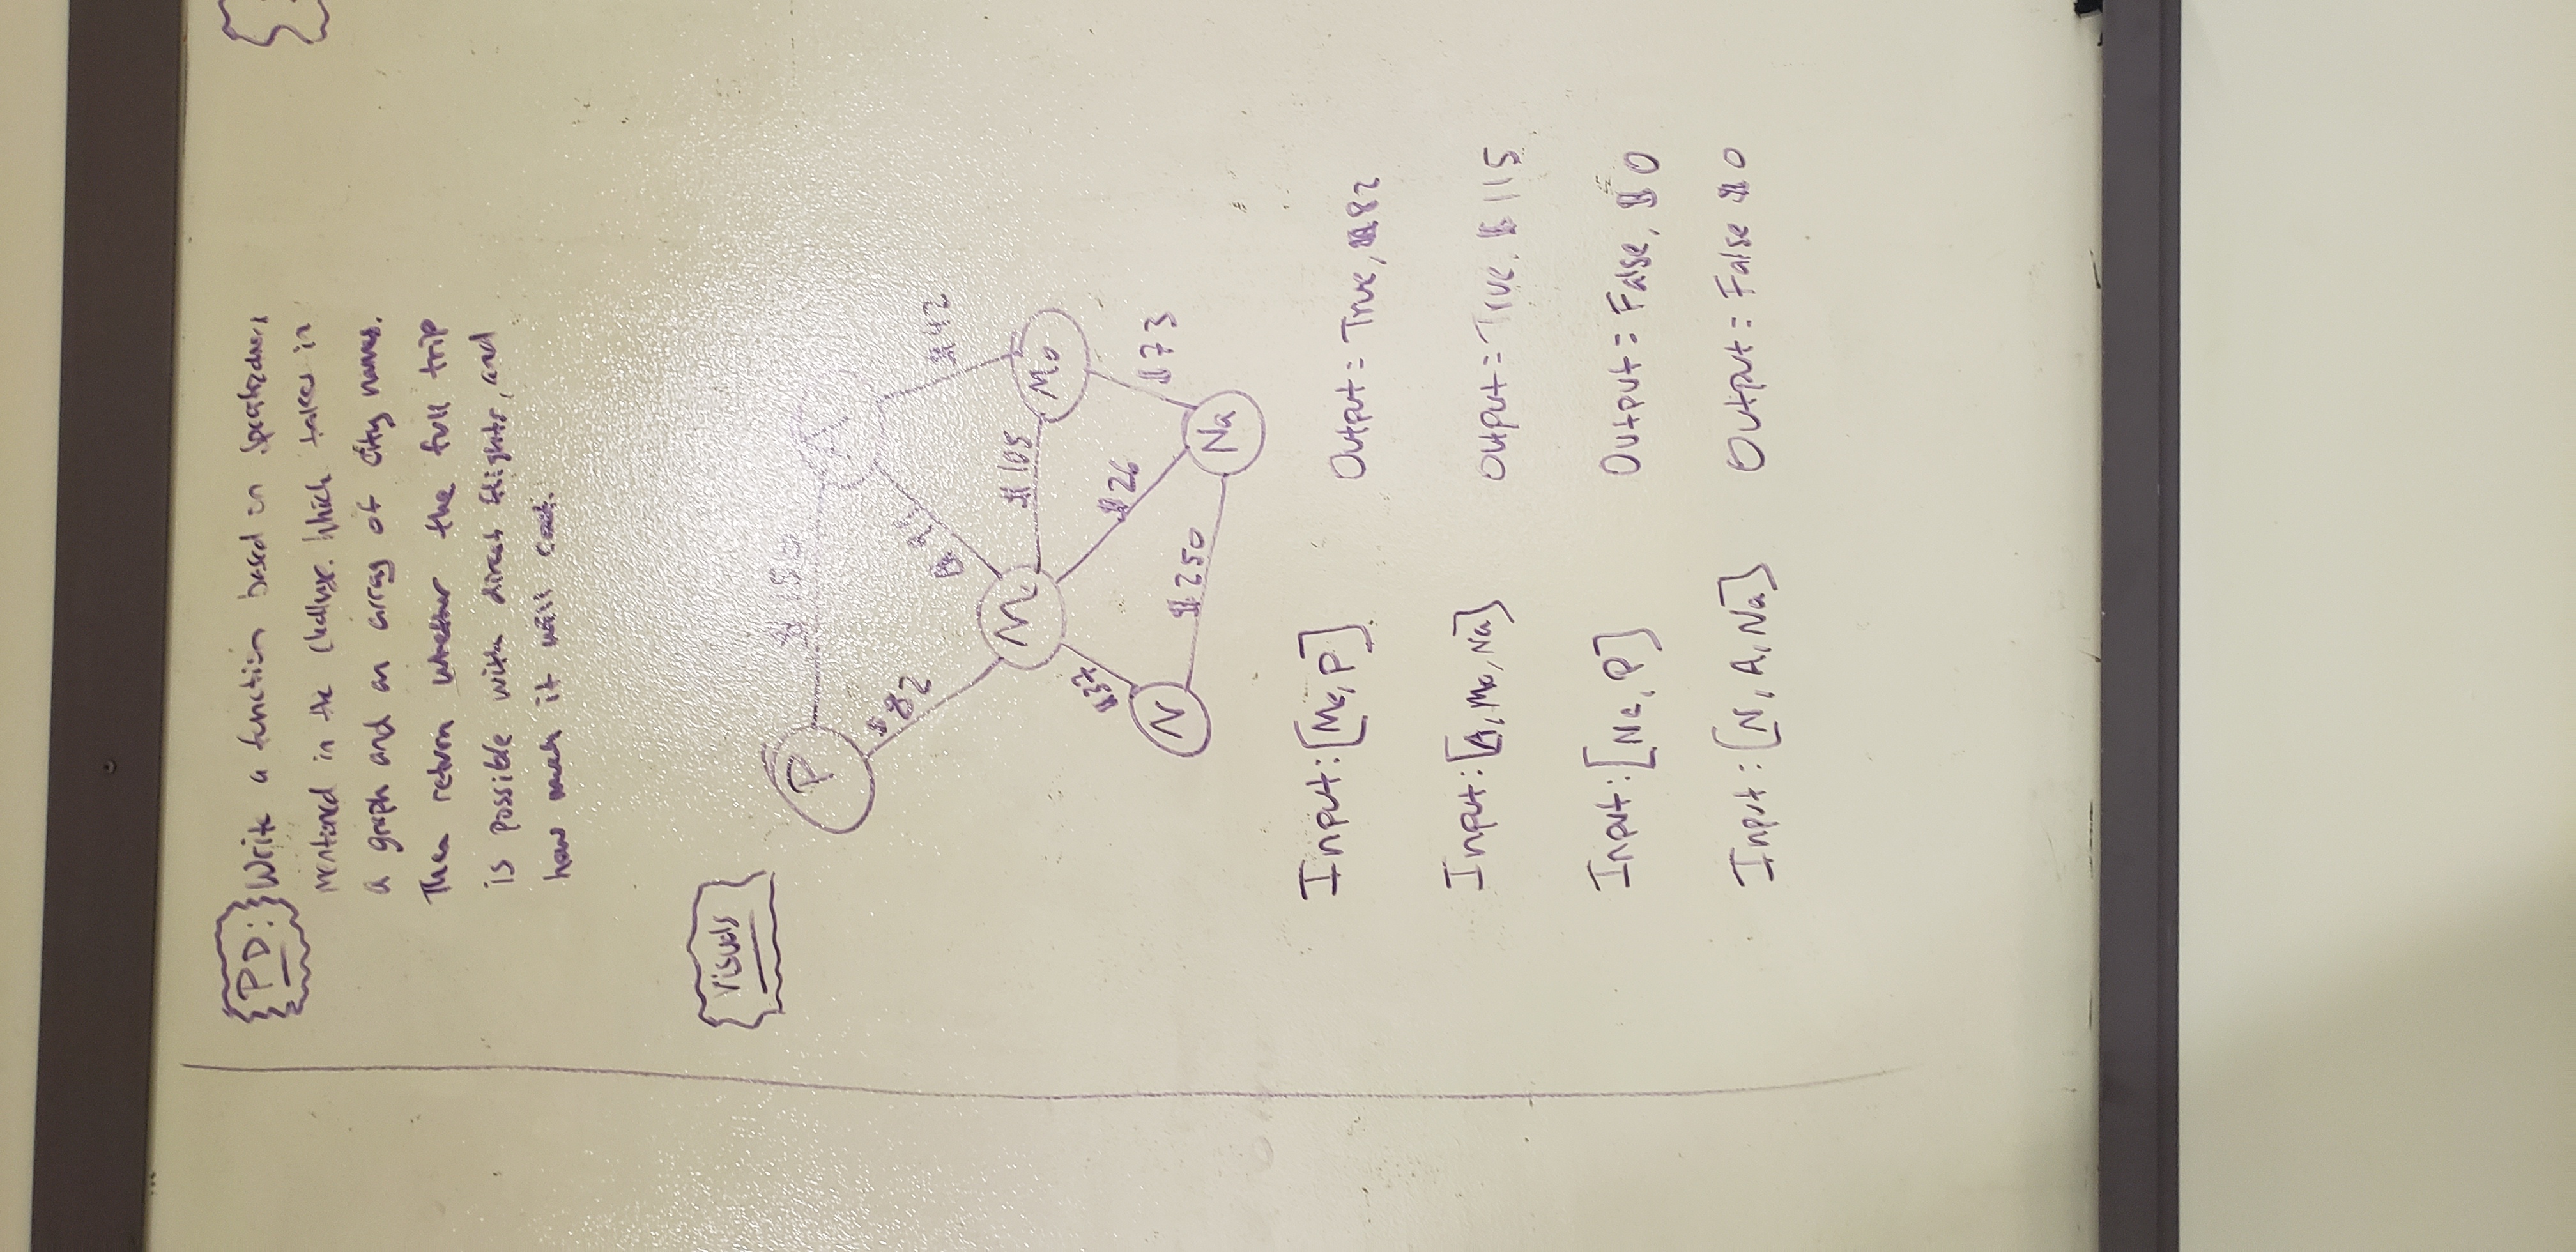 PD: Write a function based on specifications
mentioned in the challenge. Which takes in
a graph and an array of city names.
Then return whether the full trip
is possible with direct flights, and
how much it will cost.
Visuals
P $150 A
$82 $42
Me $105 Mo
$37 $26 $73
N $250 Na
Input: [Me, P] Output = True, $82
Input: [A, Mo, Na] Output = True, $115
Input: [Na, P] Output = False, $0
Input: [N, A, Na] Output = False $0